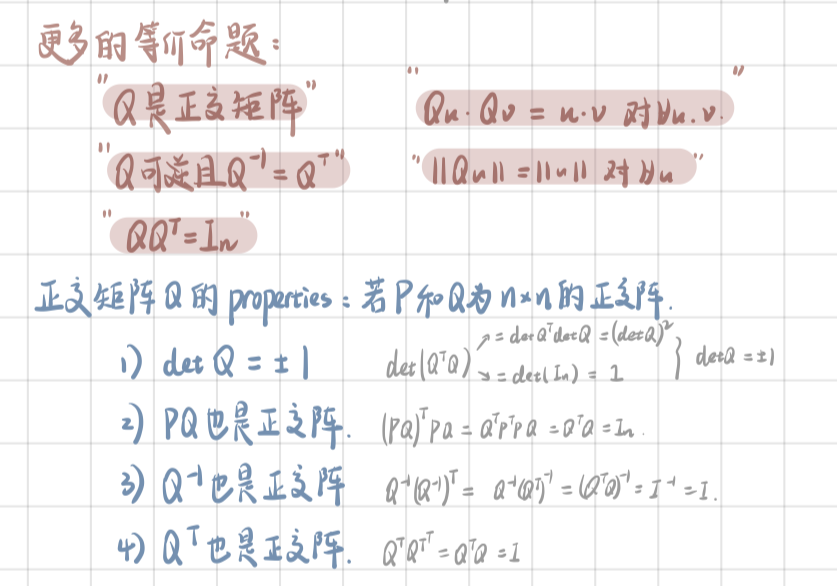 更多的等价命题：
"Q是正交矩阵" "Qu·Qv = u·v 对∀u.v."
"Q可逆且Q⁻¹=Qᵀ" "||Qu||=||u|| 对∀u"
"QQᵀ=Iₙ"
正交矩阵Q的properties：若P和Q为n×n的正交阵.
1) det Q = ±1 det(QᵀQ) ↗ = detQᵀdetQ = (detQ)² ↘ = det(Iₙ) = 1 } detQ = ±1
2) PQ也是正交阵. (PQ)ᵀPQ = QᵀPᵀPQ = QᵀQ = Iₙ.
3) Q⁻¹也是正交阵 Q⁻¹(Q⁻¹)ᵀ = Q⁻¹(Qᵀ)⁻¹ = (QᵀQ)⁻¹ = I⁻¹ = I.
4) Qᵀ也是正交阵. QᵀQᵀᵀ = QᵀQ = I